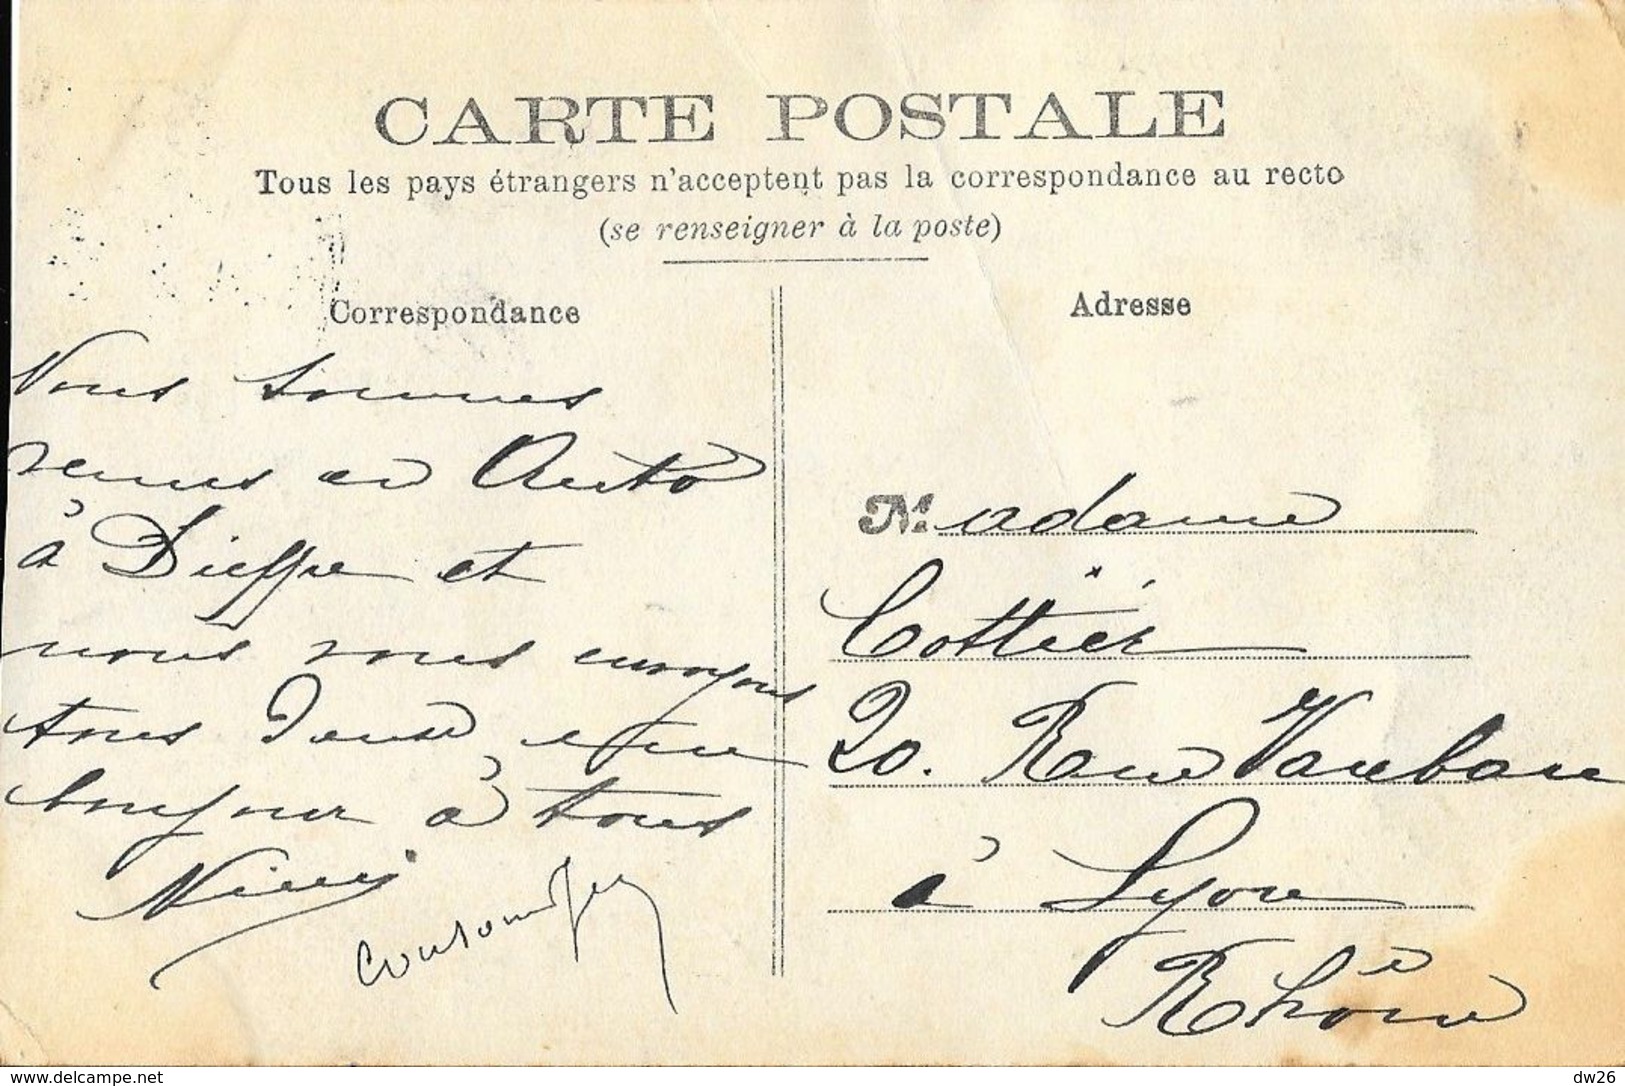 CARTE POSTALE
Tous les pays étrangers n'acceptent pas la correspondance au recto
(se renseigner à la poste)
Correspondance
Nous sommes
venus en Auto
à Dieppe et
nous vous envoyons
tous deux, un
bonjour à tous
Adresse
Madame
Cottier
20. Rue Vauban
à Lyon
Rhône
www.delcampe.net
dw26